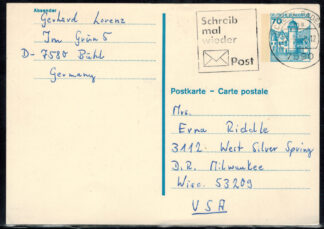 Absender
Gerhard Lorenz
Im Grün 5
D-7580 Bühl
Germany
Schreib
mal
wieder
Post
70
Postkarte - Carte postale
Mrs.
Erna Riddle
3112. West Silver Spring
D.R. Milwaukee
Wisc. 53209
USA